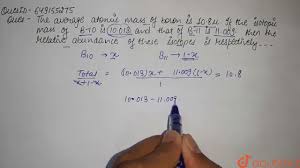 QuesID - 649155275
Ques - The average atomic mass of boron is 10.8u. If the isotopic
mass of B-10 is 10.013 and that of B-11 is 11.009 then the
relative abundance of these isotopes is respectively...
B10 → x B11 → 1-x
Total = (10.013)x + 11.009(1-x) = 10.8
x+1-x 1
10.013 - 11.009